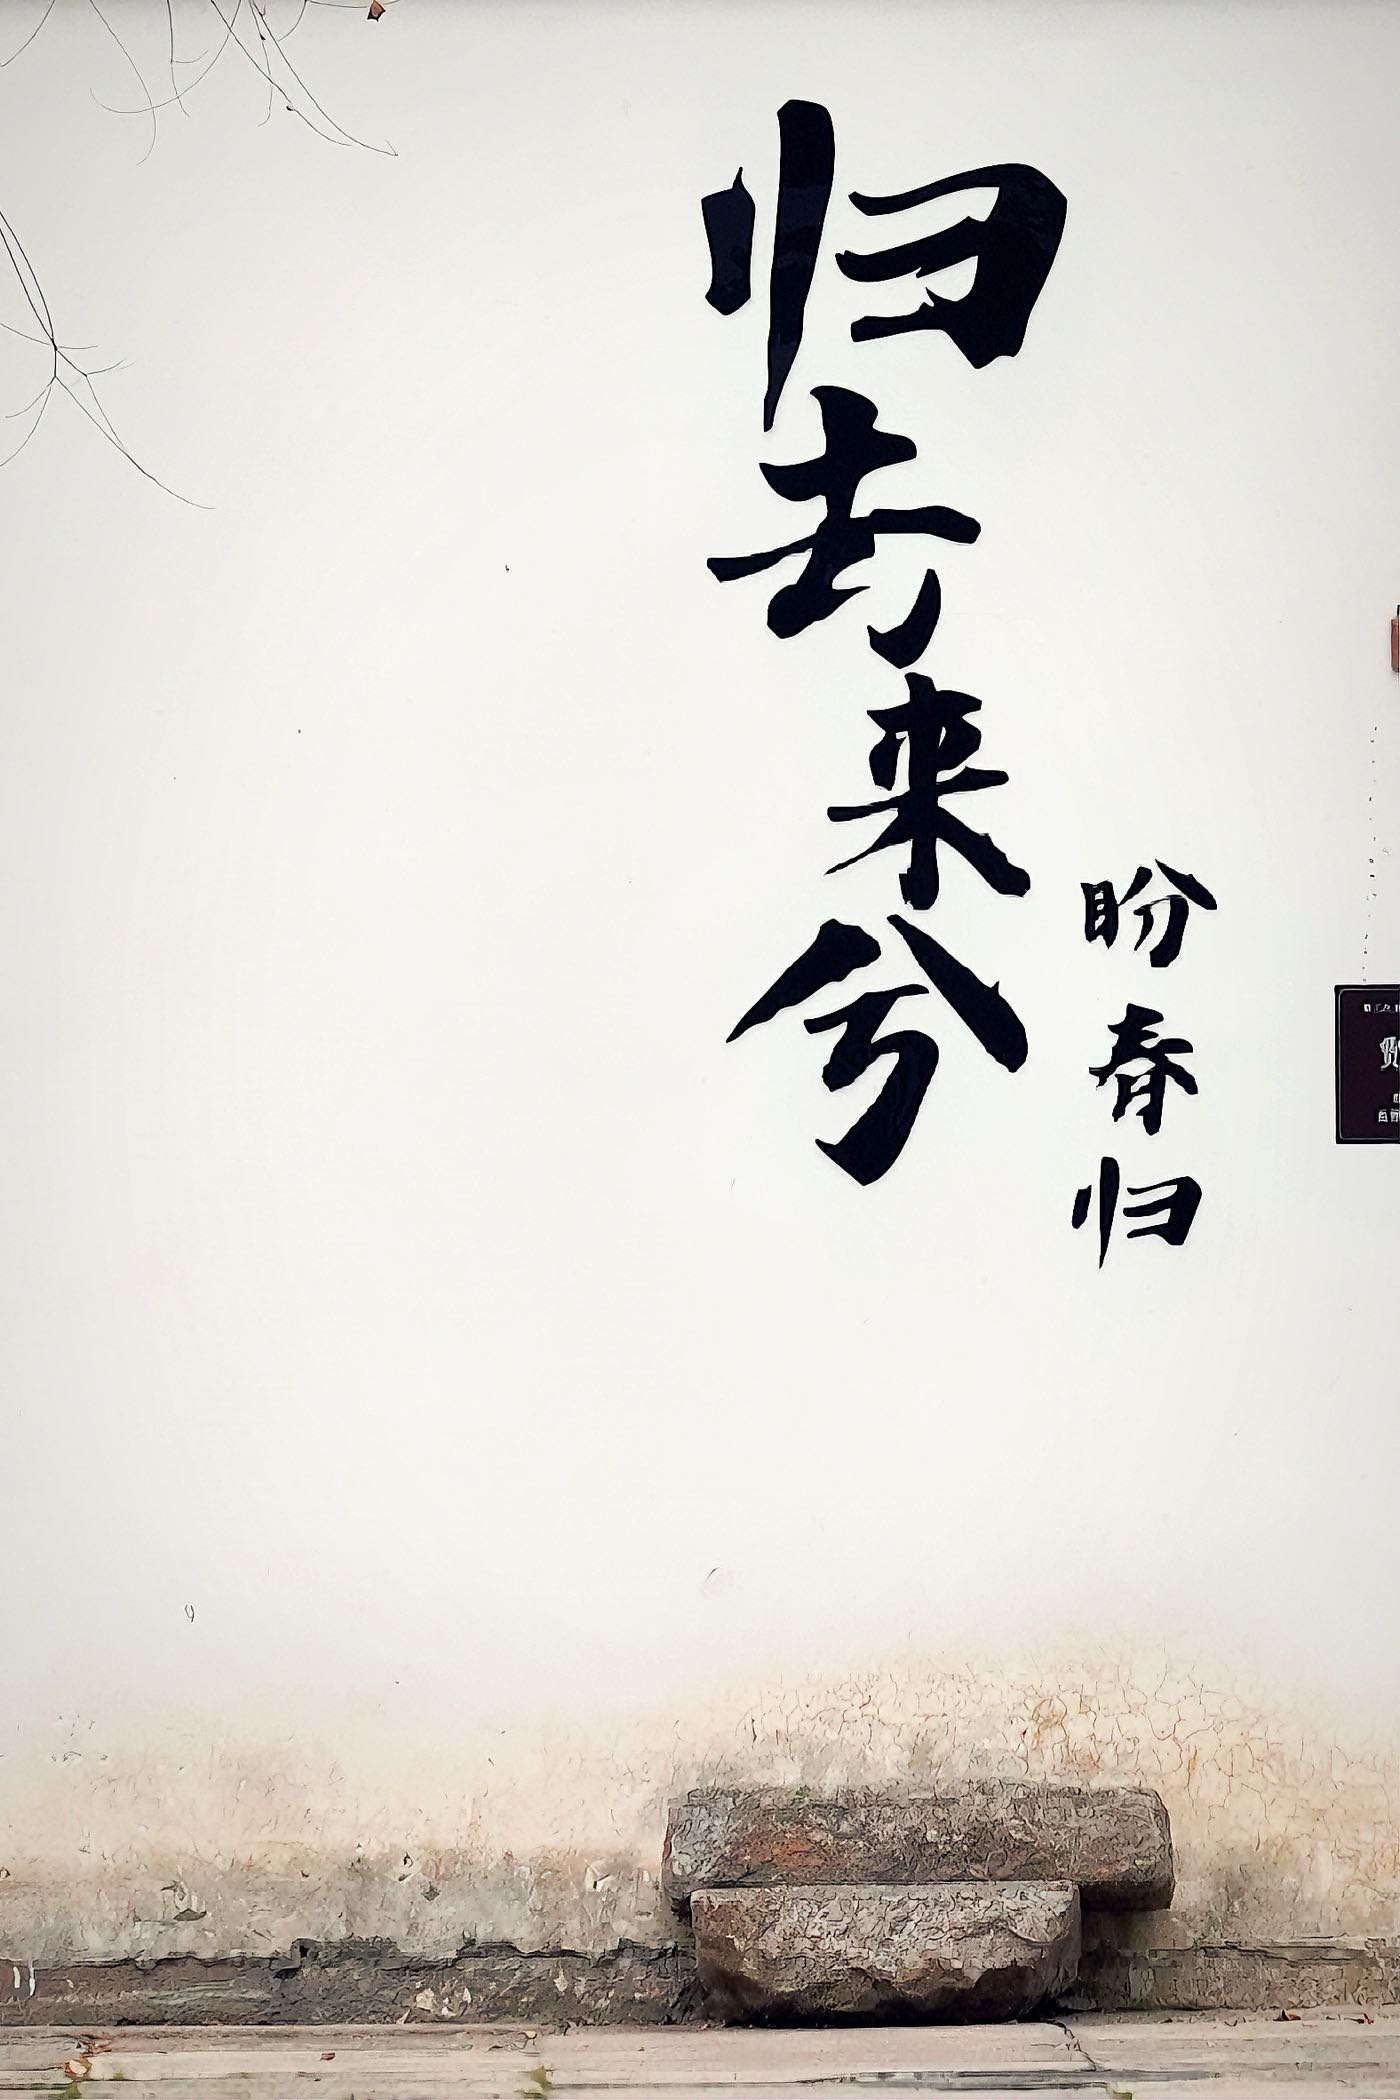 归去来兮
盼春归